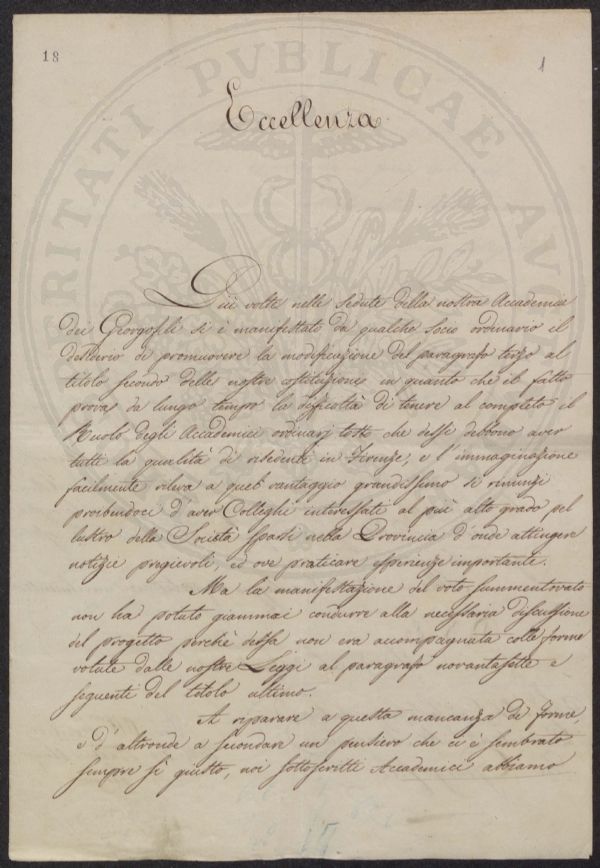 18
1
Eccellenza
Più volte nelle sedute della nostra Accademia
dei Georgofili si è manifestato da qualche socio ordinario il
desiderio di promuovere la modificazione del paragrafo terzo al
titolo secondo delle nostre costituzioni in quanto che il fatto
prova da lungo tempo la difficoltà di tenere al completo il
Ruolo degli Accademici ordinarj tosto che dessi debbono aver
tutti la qualità di residenti in Firenze, e l'immaginazione
facilmente rileva a quel vantaggio grandissimo si rinunzi
proibendoci d'aver Colleghi interessati al più alto grado pel
lustro della Società sparsi nella Provincia d'onde attingere
notizie pregievoli, ed ove praticare esperienze importante.
Ma la manifestazione del voto summentovato
non ha potuto giammai condurre alla necessaria discussione
del progetto perchè dessa non era accompagnata colle forme
volute dalle nostre Leggi al paragrafo novantasette e
seguenti del titolo ultimo.
A riparare a questa mancanza di forme,
e d'altronde a secondare un pensiero che ci è sembrato
sempre sì giusto, noi sottoscritti Accademici abbiamo
VERITATI PVBLICAE AVG